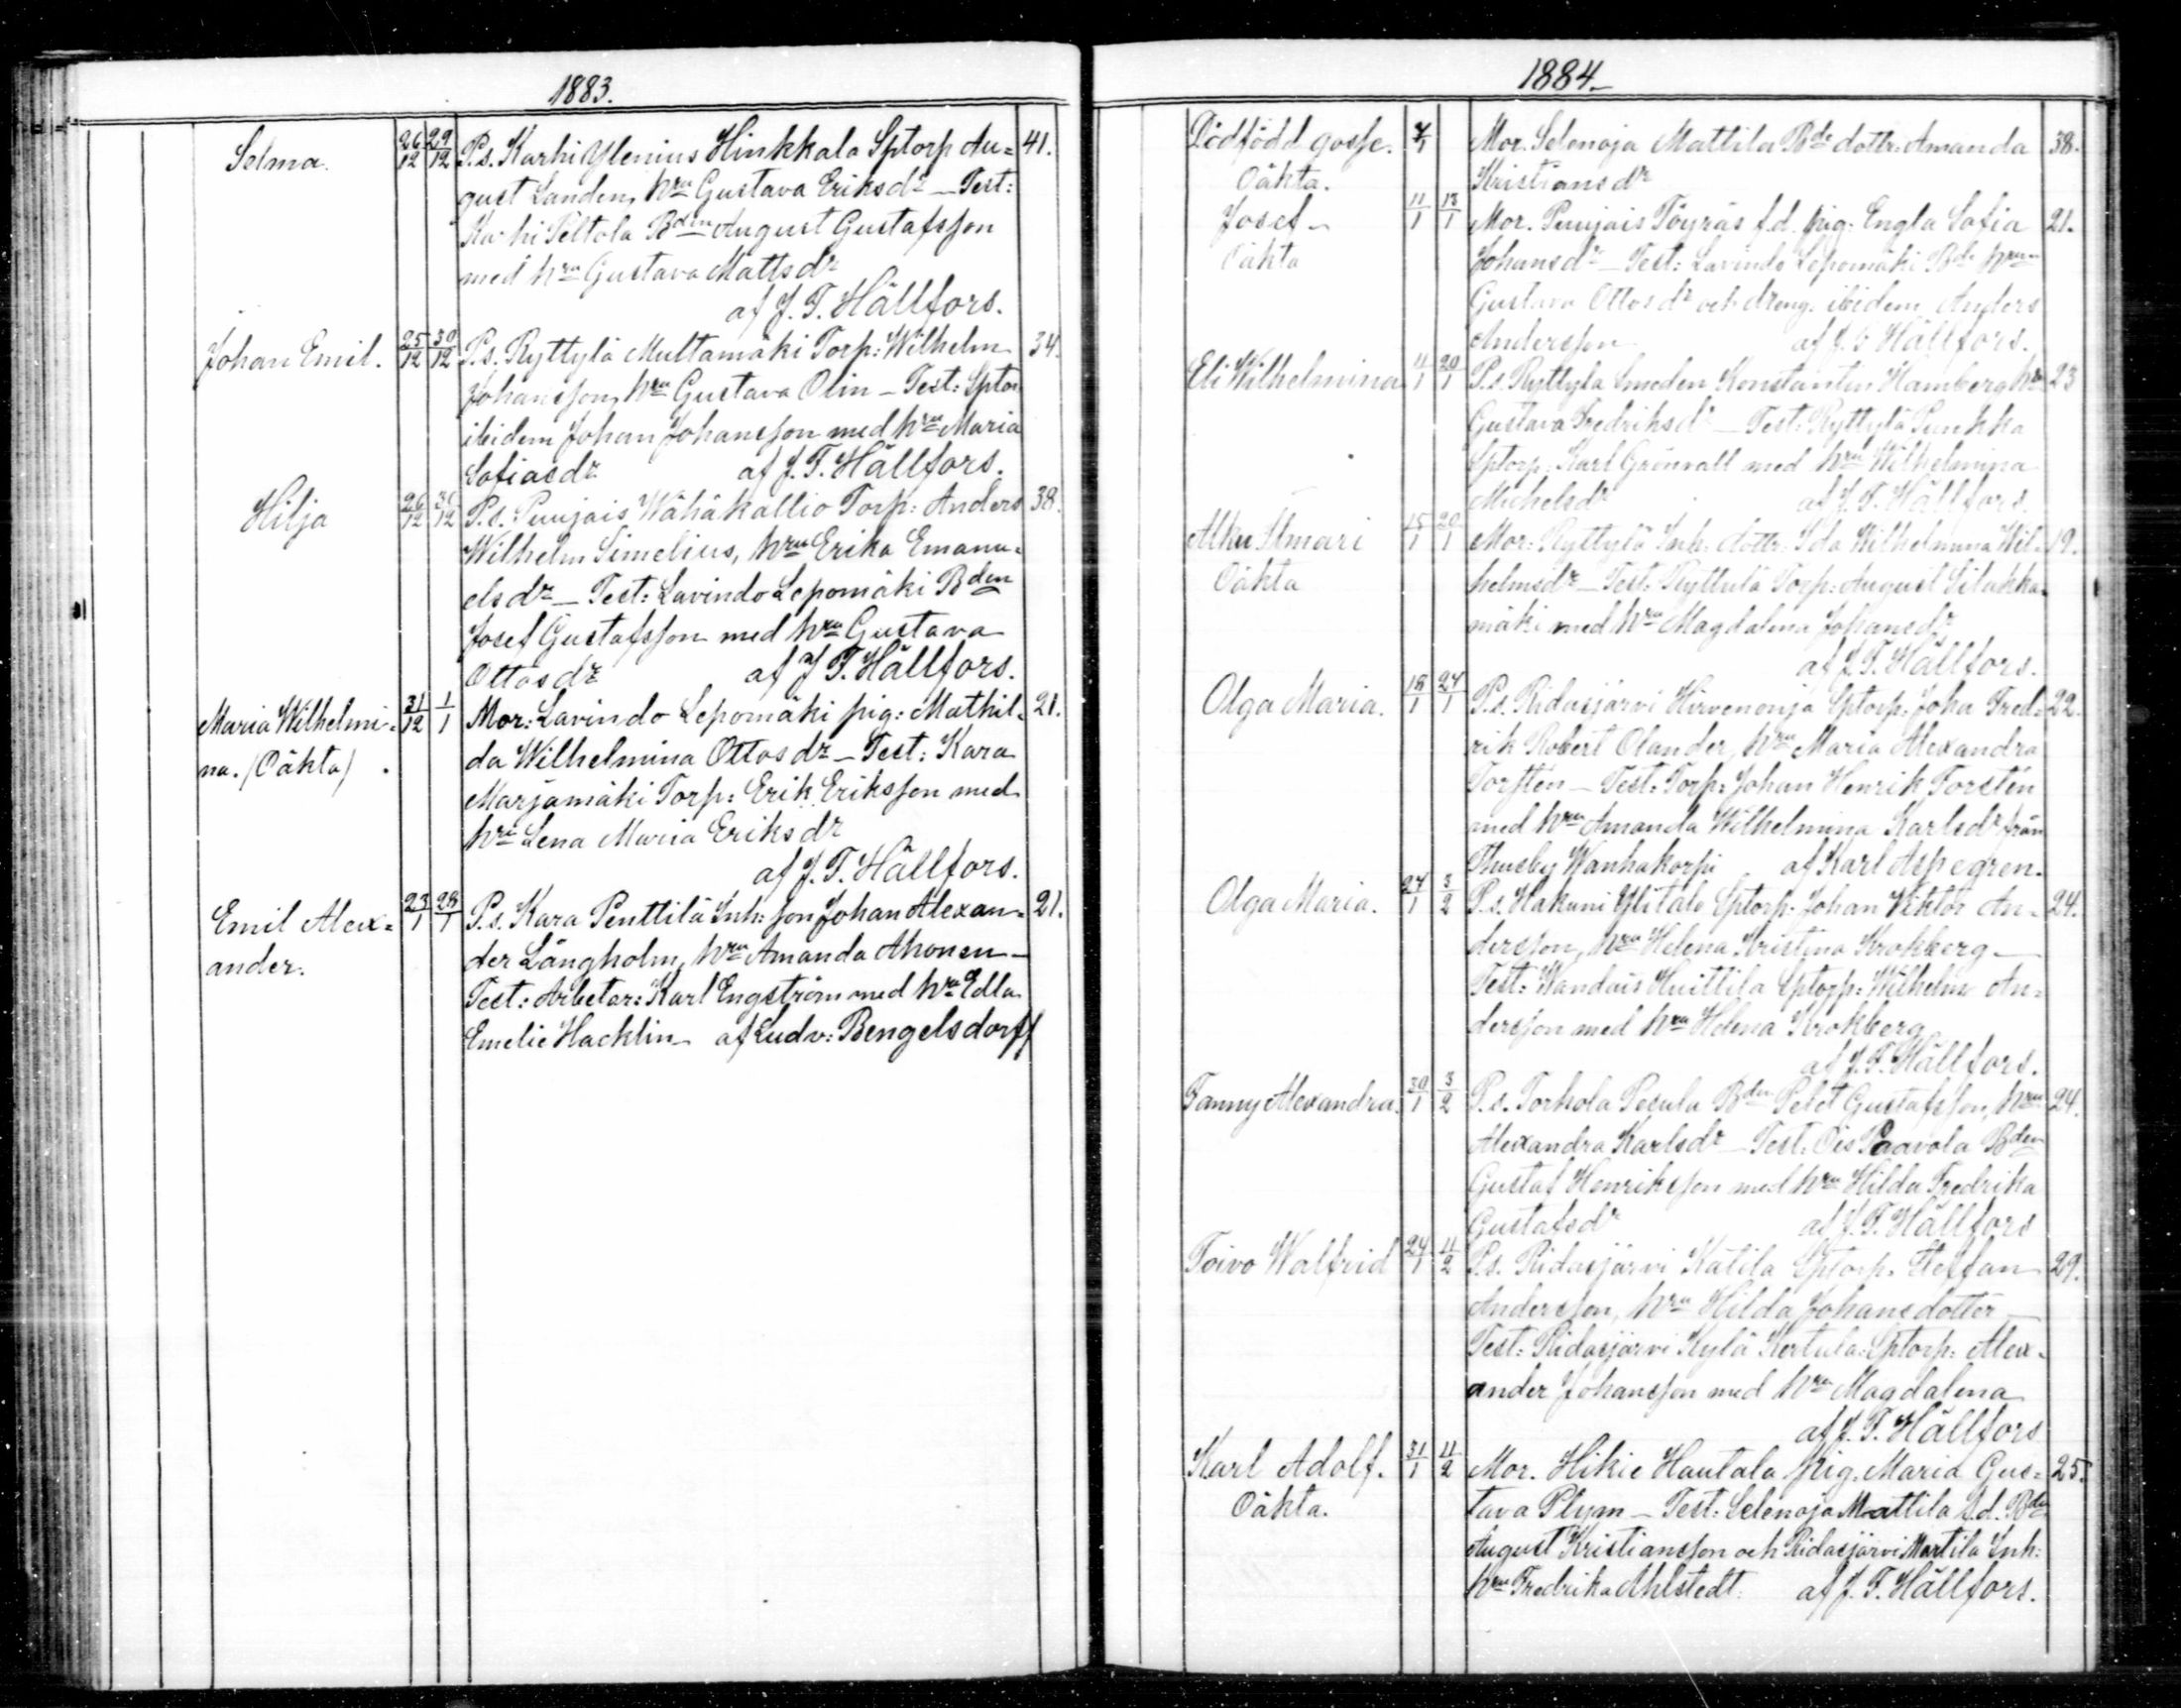 1883.
Selma. 26/12 29/12 P.s. Karhi Ylenius Hinkkala Sptorp Au= 41.
gust Landen, hru Gustava Eriksdr – Test:
Karhi Peltola Bden August Gustafsson
med hru Gustava Mattsdr
af J. T. Hällfors.
Johan Emil. 25/12 30/12 P.s. Ryttylä Multamäki Torp: Wilhelm 34.
Johansson, hru Gustava Olin – Test: Sptor
ibidem Johan Johansson med hru Maria
Sofiasdr af J. T. Hällfors.
Hilja 26/12 30/12 P.s. Puujais Wähäkallio Torp: Anders 38.
Wilhelm Simelius, hru Erika Emanu=
elsdr – Test: Lavindo Lepomäki Bden
Josef Gustafsson med hru Gustava
Ottosdr af J. T. Hällfors.
Maria Wilhelmi= 31/12 1/1 Mor: Lavindo Lepomäki pig: Mathil= 21.
na. (Oäkta) da Wilhelmina Ottosdr – Test: Kara
Marjamäki Torp: Erik Eriksson med
hru Lena Maria Eriksdr
af J. T. Hällfors.
Emil Alex= 23/1 28/1 P.s. Kara Penttilä Inh: son Johan Alexan= 21.
ander. der Långholm, hru Amanda Ahonen –
Test: Arbetar: Karl Engström med hru Edla
Emelie Hacklin – af Ludv: Bengelsdorff
1884.
Dödfödd gosse. 7/1 Mor. Selenoja Mattila Bde dottr: Amanda 38.
Oäkta. Kristiansdr
Josef – 11/1 13/1 Mor. Puujais Töyräs f.d. pig: Engla Sofia 21.
Oäkta Johansdr – Test: Lavindo Lepomäki Bde hrun
Gustava Ottosdr och dreng. ibidem Anders
Andersson af J. T. Hällfors.
Eli Wilhelmina 11/1 20/1 P.s. Ryttylä Smeden Konstantin Hamberg hr 23
Gustava Fredriksdr – Test: Ryttylä Punkka
Sptorp: Karl Grönvall med hru Wilhelmina
Michelsdr af J. T. Hällfors.
Ilmari 15/1 20/1 Mor: Ryttylä Inh. dottr. Ida Wilhelmina Wil= 19.
Oäkta helmsdr – Test: Ryttylä Torp: August Silakka=
mäki med hru Magdalena Johansdr
af J. T. Hällfors.
Olga Maria. 18/1 27/1 P.s. Ridasjärvi Hirvenoja Sptorp: Joha Fred= 22.
rik Robert Olander, hru Maria Alexandra
Torstén – Test: Torp: Johan Henrik Torstén
med hru Amanda Wilhelmina Karlsdr från
Thusby Wanhakorpi af Karl Aspegren.
Olga Maria. 27/1 3/2 P.s. Hakuni Ylitalo Sptorp: Johan Viktor An= 24.
dersson, hru Helena Kristina Krokberg –
Test: Wandais Huittila Sptorp: Wilhelm An=
dersson med hru Helena Krokberg
af J. T. Hällfors.
Fanny Alexandra. 30/1 3/2 P.s. Torhola Pesula Bden Petet Gustafsson, hru 24.
Alexandra Karlsdr – Test: Ois Paavola Bden
Gustaf Henriksson med hru Hilda Fredrika
Gustafsdr af J. T. Hällfors
Toivo Walfrid 24/1 11/2 P.s. Ridasjärvi Kätilä Sptorp. Steffan 29.
Andersson, hru Hilda Johansdotter –
Test: Ridasjärvi Kylä Kertula: Sptorp: Alex=
ander Johansson med hru Magdalena
af J. T. Hällfors
Karl Adolf. 31/1 11/2 Mor. Hikie Hautala pig. Maria Gus= 25.
Oäkta. tava Plym – Test: Selenoja Mattila f.d. Bde
August Kristiansson och Ridasjärvi Martila Inh:
hru Fredrika Ahlstedt. af J. T. Hällfors.